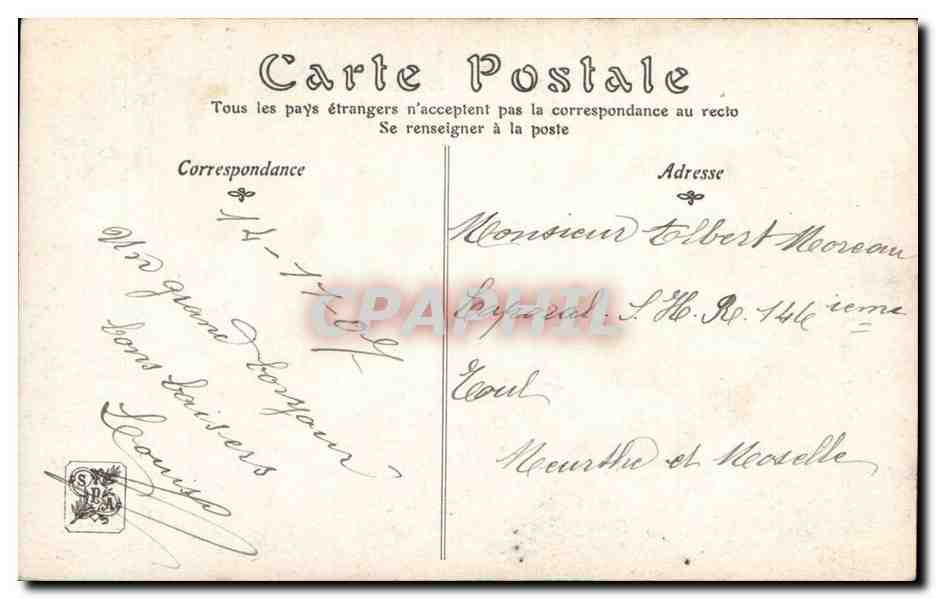 Carte Postale
Tous les pays étrangers n'acceptent pas la correspondance au recto
Se renseigner à la poste
Correspondance
Un grand bonjour
bons baisers
Louise
Adresse
Monsieur Albert Moreau
Caporal. S. H. R. 146 ieme
Toul
Meurthe et Moselle
CPAPHIL